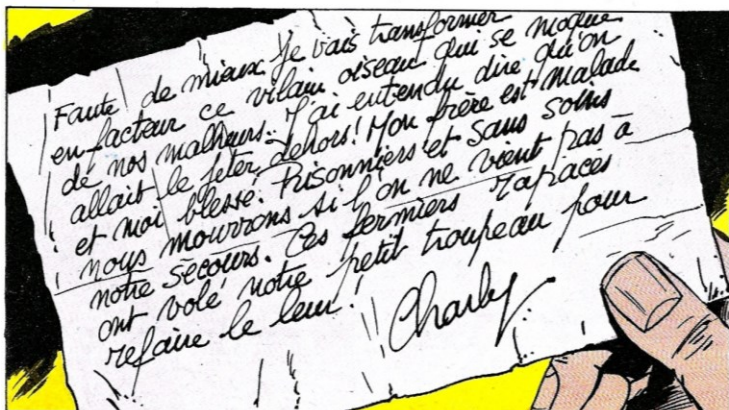 Faute de mieux je vais transformer
en facteur ce vilain oiseau qui se moque
de nos malheurs.. J'ai entendu dire qu'on
allait le jeter dehors! Mon frère est malade
et moi blessé. Prisonniers et sans soins
nous mourrons si l'on ne vient pas à
notre secours. Ces fermiers rapaces
ont volé notre petit troupeau pour
refaire le leur!
Charley